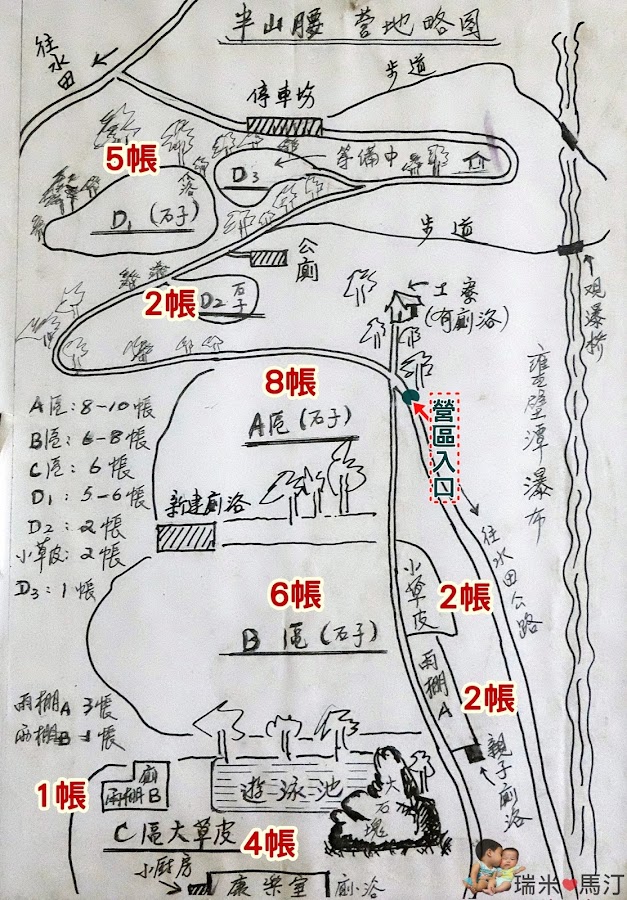 半山腰 營地略图
往水田
步道
停車坊
5帳
D3
等備中
D1 (石子)
公廁
步道
2帳
D2 石子
工寮
(有廁浴)
观瀑橋
8帳
A區(石子)
營區入口
A區:8-10帳
B區:6-8帳
C區:6帳
D1:5-6帳
D2:2帳
小草皮:2帳
D3:1帳
新建廁浴
往水田公路
小草皮
2帳
6帳
B區(石子)
雨棚A
2帳
雨棚A 3帳
雨棚B 1帳
親子廁浴
1帳
廁
雨棚B
游泳池
大石塊
C區大草皮
4帳
小厨房
康樂室
廁浴
瑞米❤馬汀